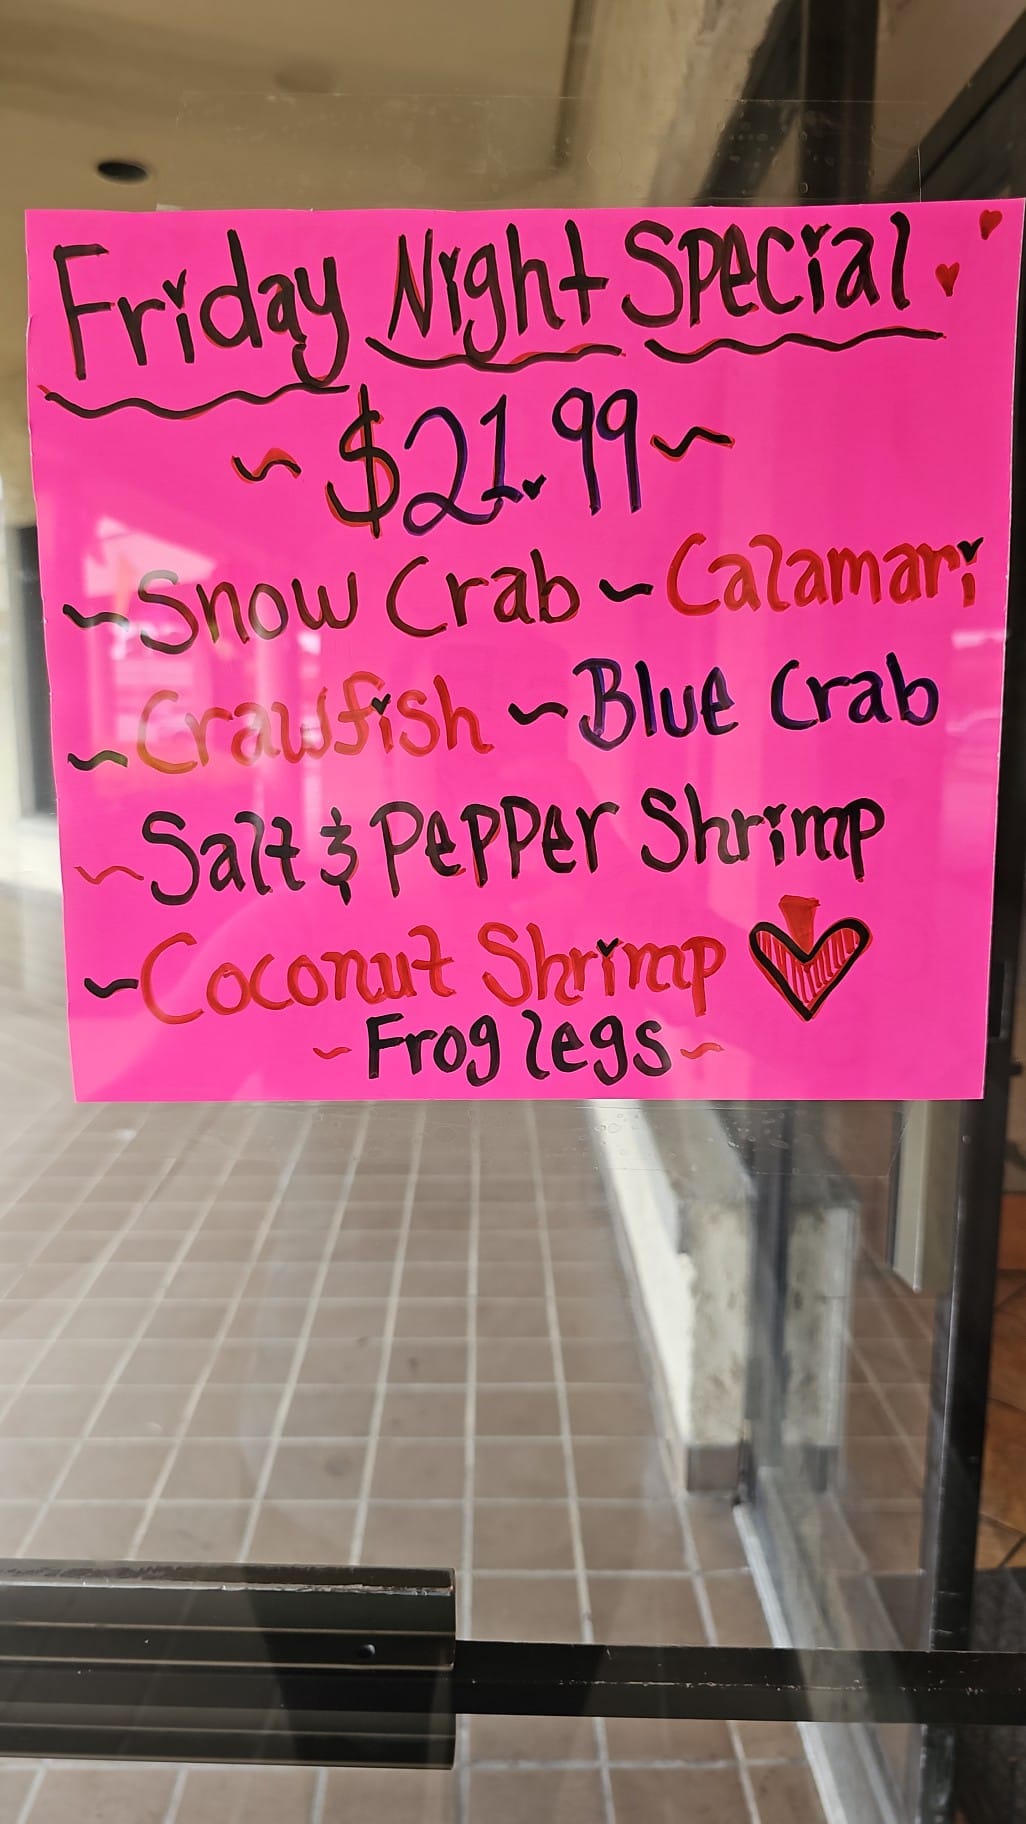 Friday Night Special
~ $21.99 ~
~ Snow Crab ~ Calamari
~ Crawfish ~ Blue Crab
~ Salt & Pepper Shrimp
~ Coconut Shrimp
~ Frog legs ~